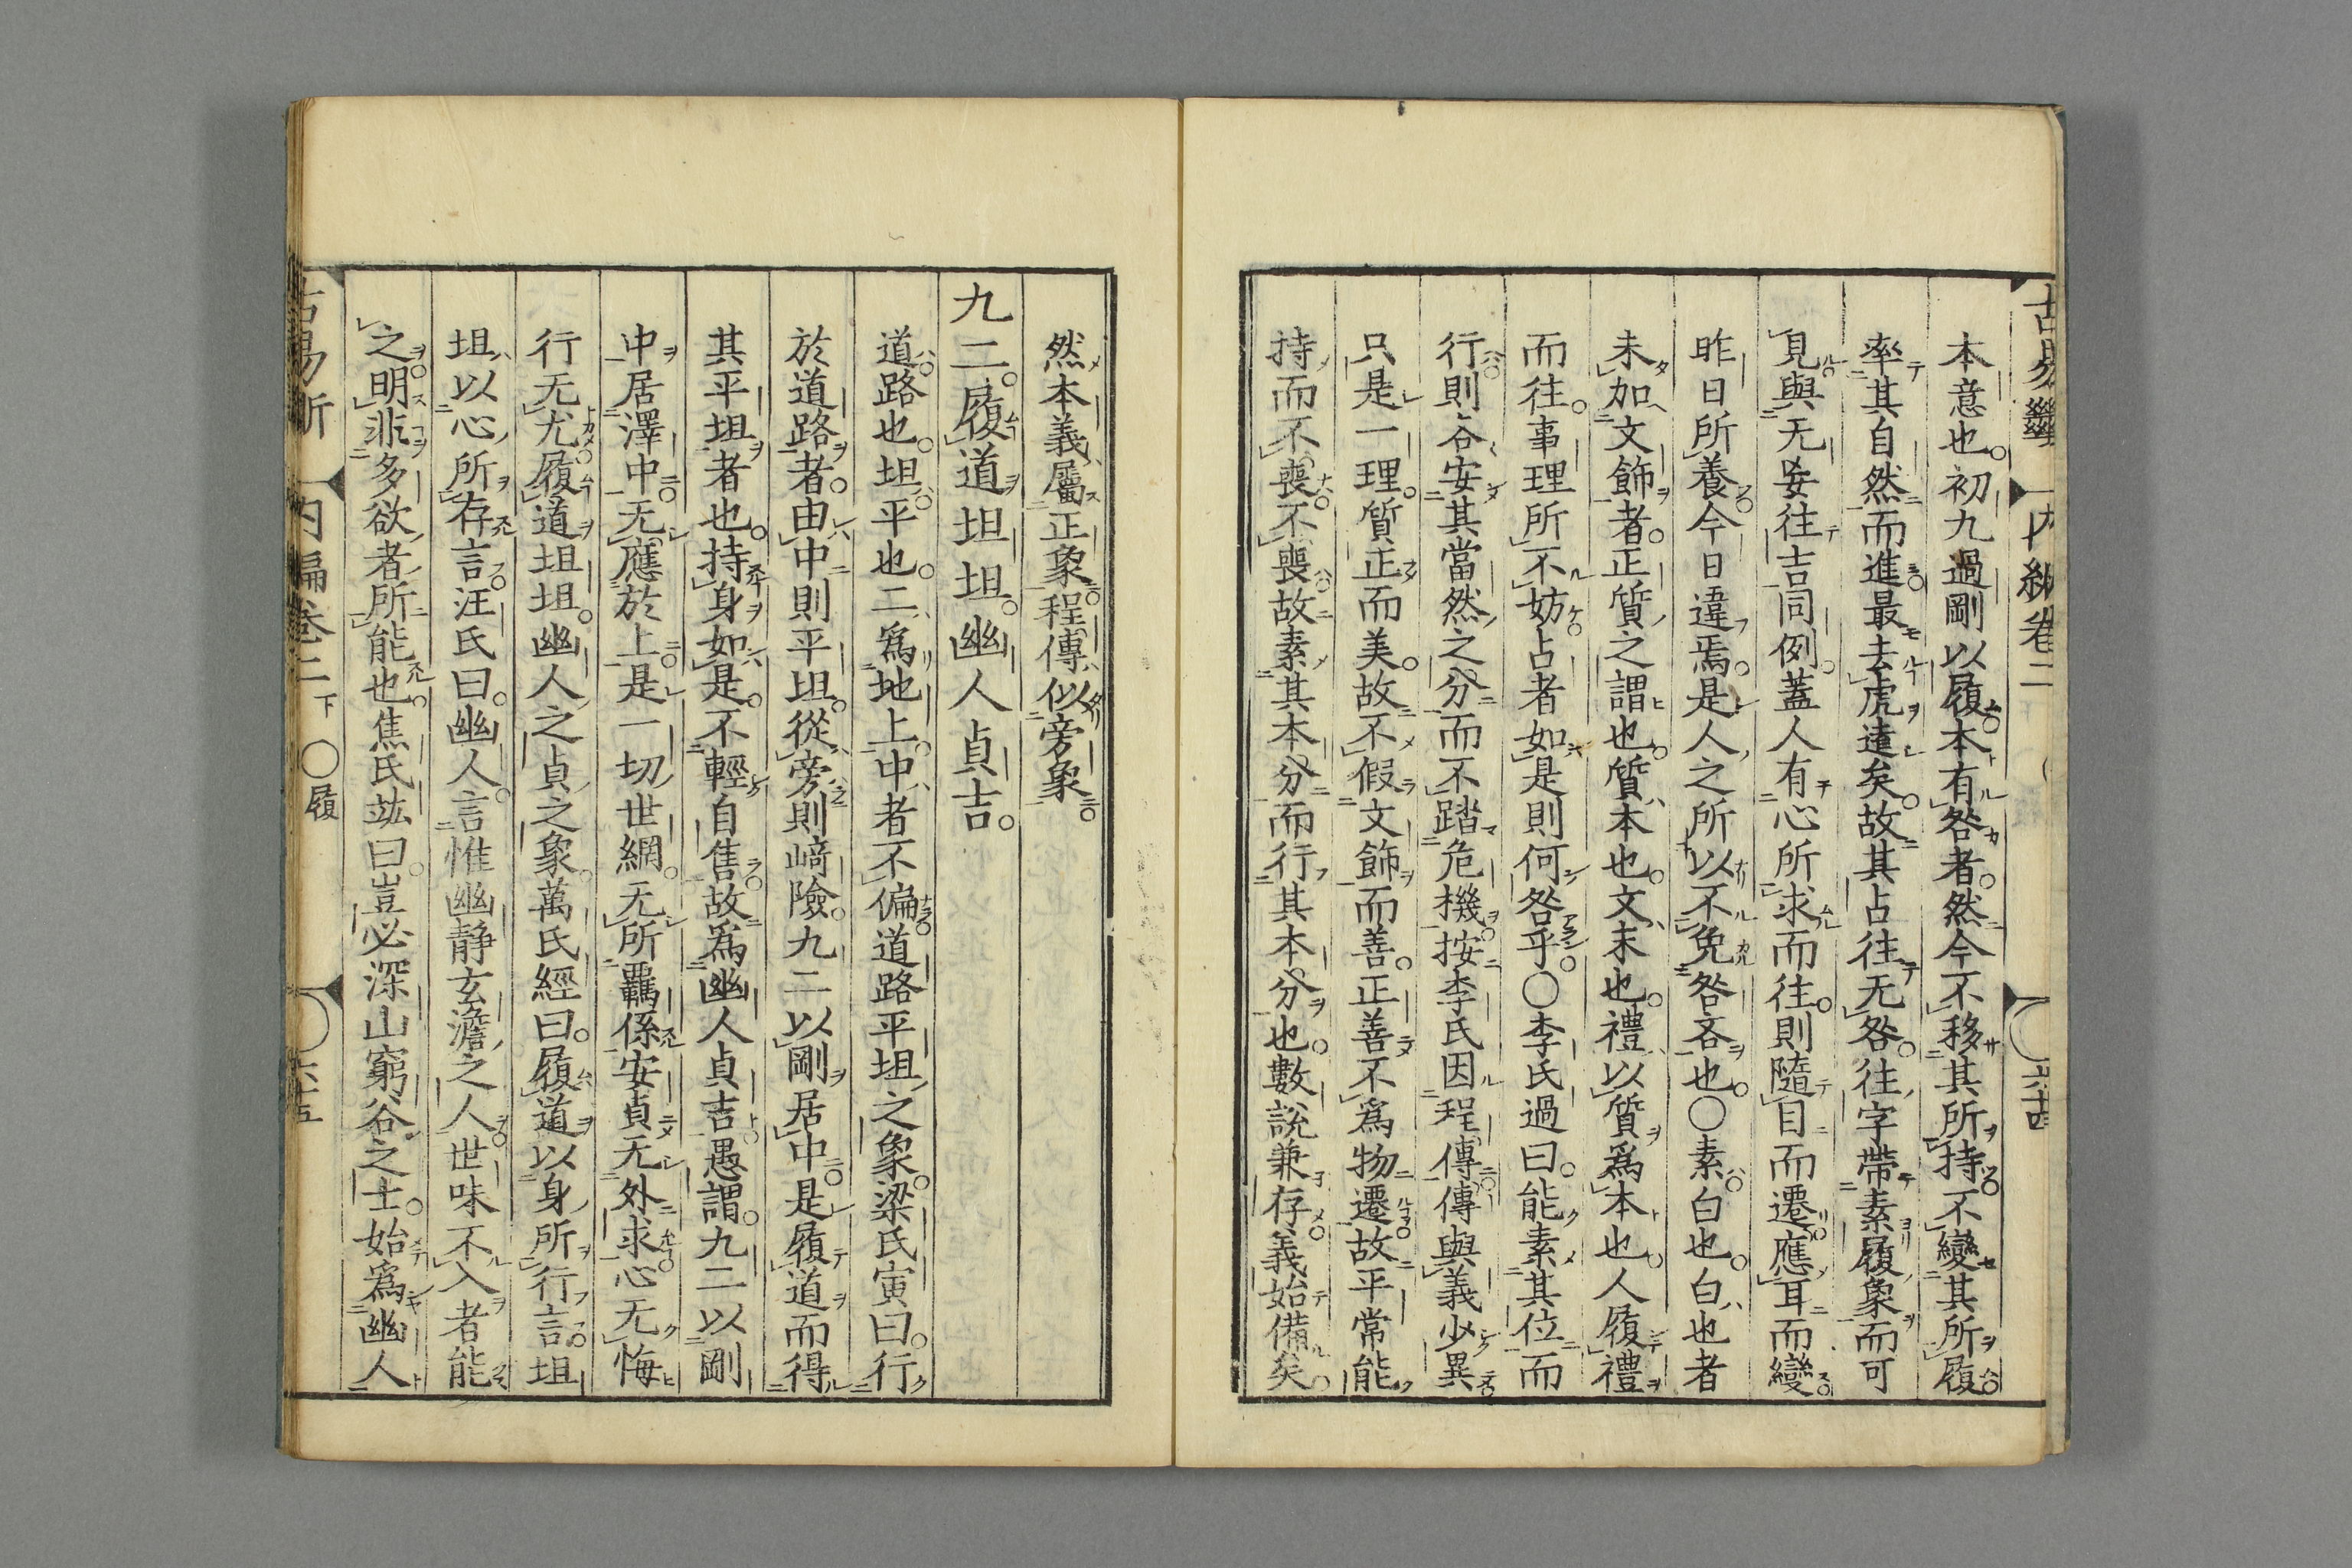 本意也。初九過剛以履本有咎者。然今不移其所持。不變其所履。
率其自然而進。最去虎遠矣。故其占往无咎。往字帶素履象而可
見。與无妄往吉同例。蓋人有心所求而往。則隨目而遷。應耳而變。
昨日所養。今日違焉。是人之所以不免咎吝也。○素。白也。白也者
未加文飾者。正質之謂也。質本也。文末也。禮以質爲本也。人履禮
而往。事理所不妨。占者如是則何咎乎。○李氏過曰。能素其位而
行。則各安其當然之分。而不踏危機。按李氏因程傳。傳與義少異。
只是一理。質正而美。故不假文飾而善。正善不爲物遷。故平常能
持而不喪。不喪。故素其本分而行其本分也。數説兼存。義始備矣。
然本義屬正象。程傳似旁象。
九二。履道坦坦。幽人貞吉。
道。路也。坦。平也。二爲地上。中者不偏。道路平坦之象。梁氏寅曰。行
於道路者。由中則平坦。從旁則崎險。九二以剛居中。是履道而得
其平坦者也。持身如是。不輕自售。故爲幽人貞吉。愚謂。九二以剛
中居澤中。无應於上。是一切世網。无所羈係。安貞无外求。心无悔
行无尤。履道坦坦。幽人之貞之象。萬氏經曰。履道以身所行言。坦
坦以心所存言。汪氏曰。幽人。言惟幽靜玄澹之人。世味不入者能
之。明非多欲者所能也。焦氏竑曰。豈必深山窮谷之士。始爲幽人
古易斷 内編卷二下 ○履 六十五
内編卷二 六十四